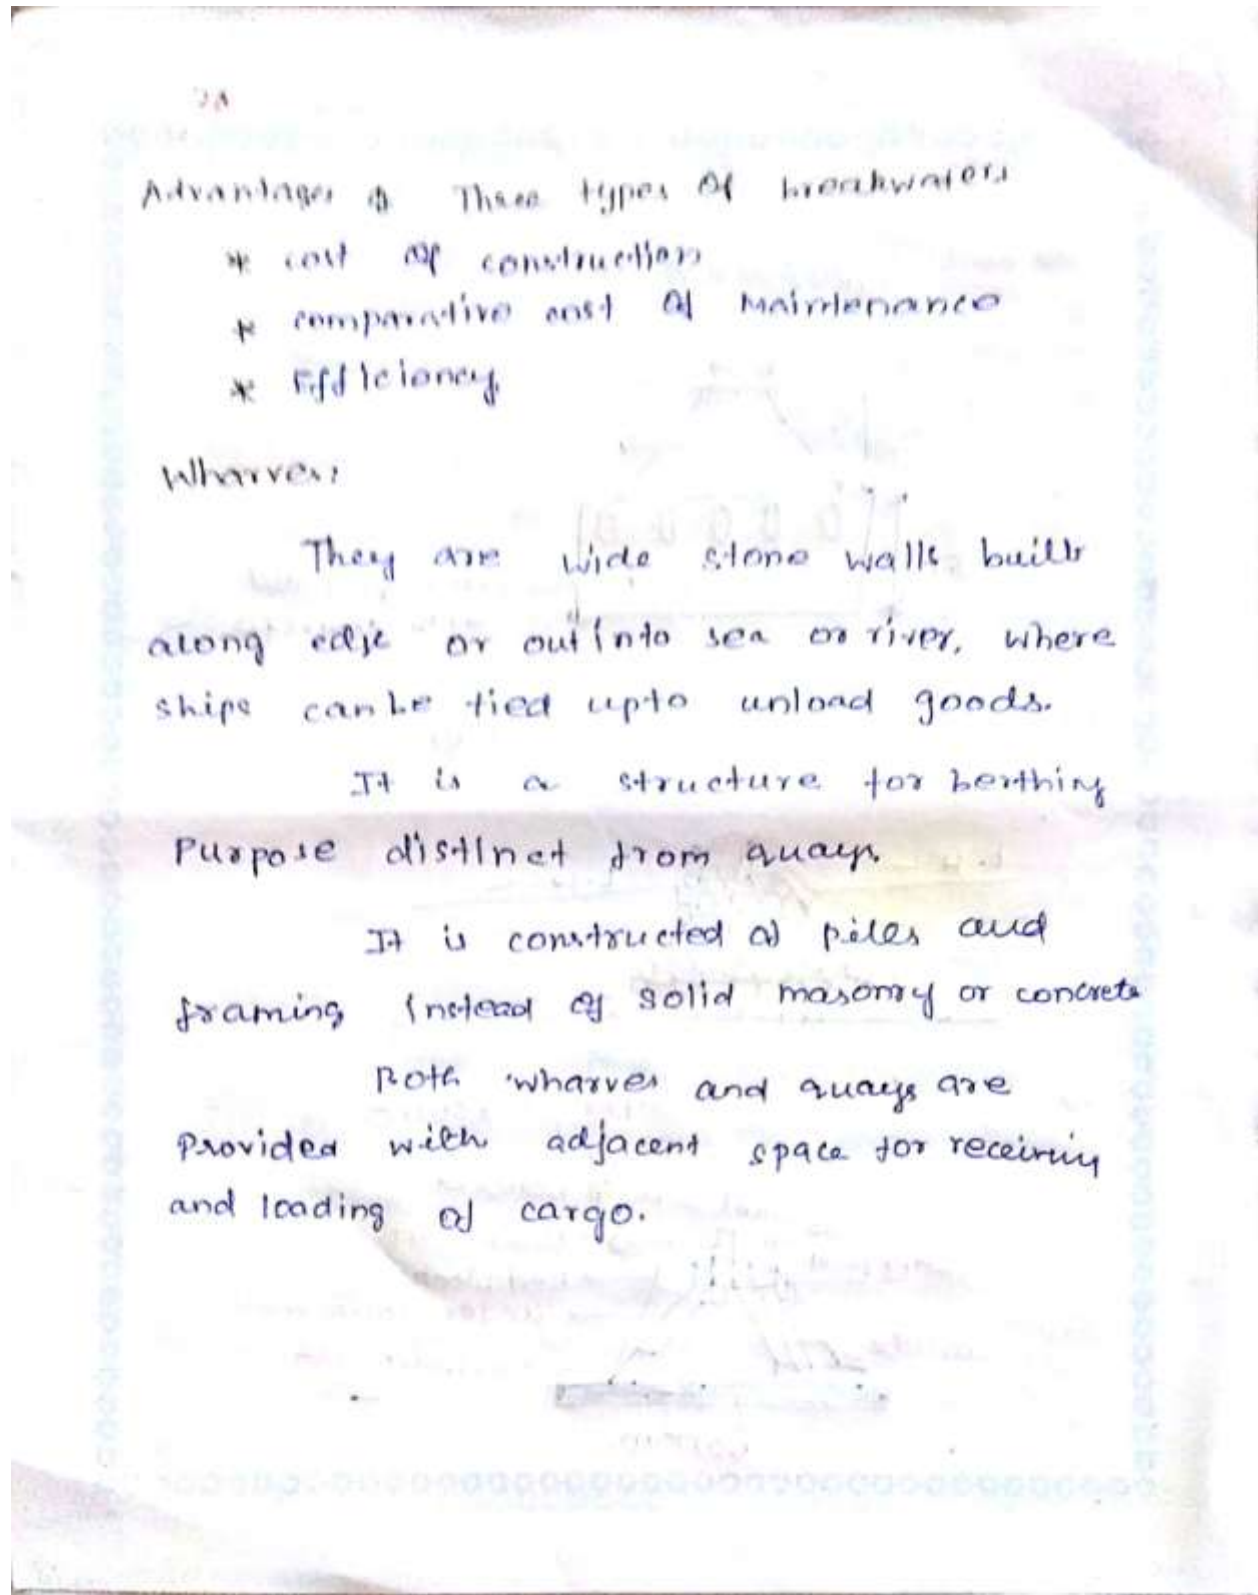 Advantages of Three types of breakwaters
* cost of construction
* comparative cost of Maintenance
* Efficiency
Wharves:
They are wide stone walls built
along edge or out into sea or river, where
ships can be tied upto unload goods.
It is a structure for berthing
Purpose distinct from quays.
It is constructed of piles and
framing instead of solid masonry or concrete
Both wharves and quays are
Provided with adjacent space for receiving
and loading of cargo.